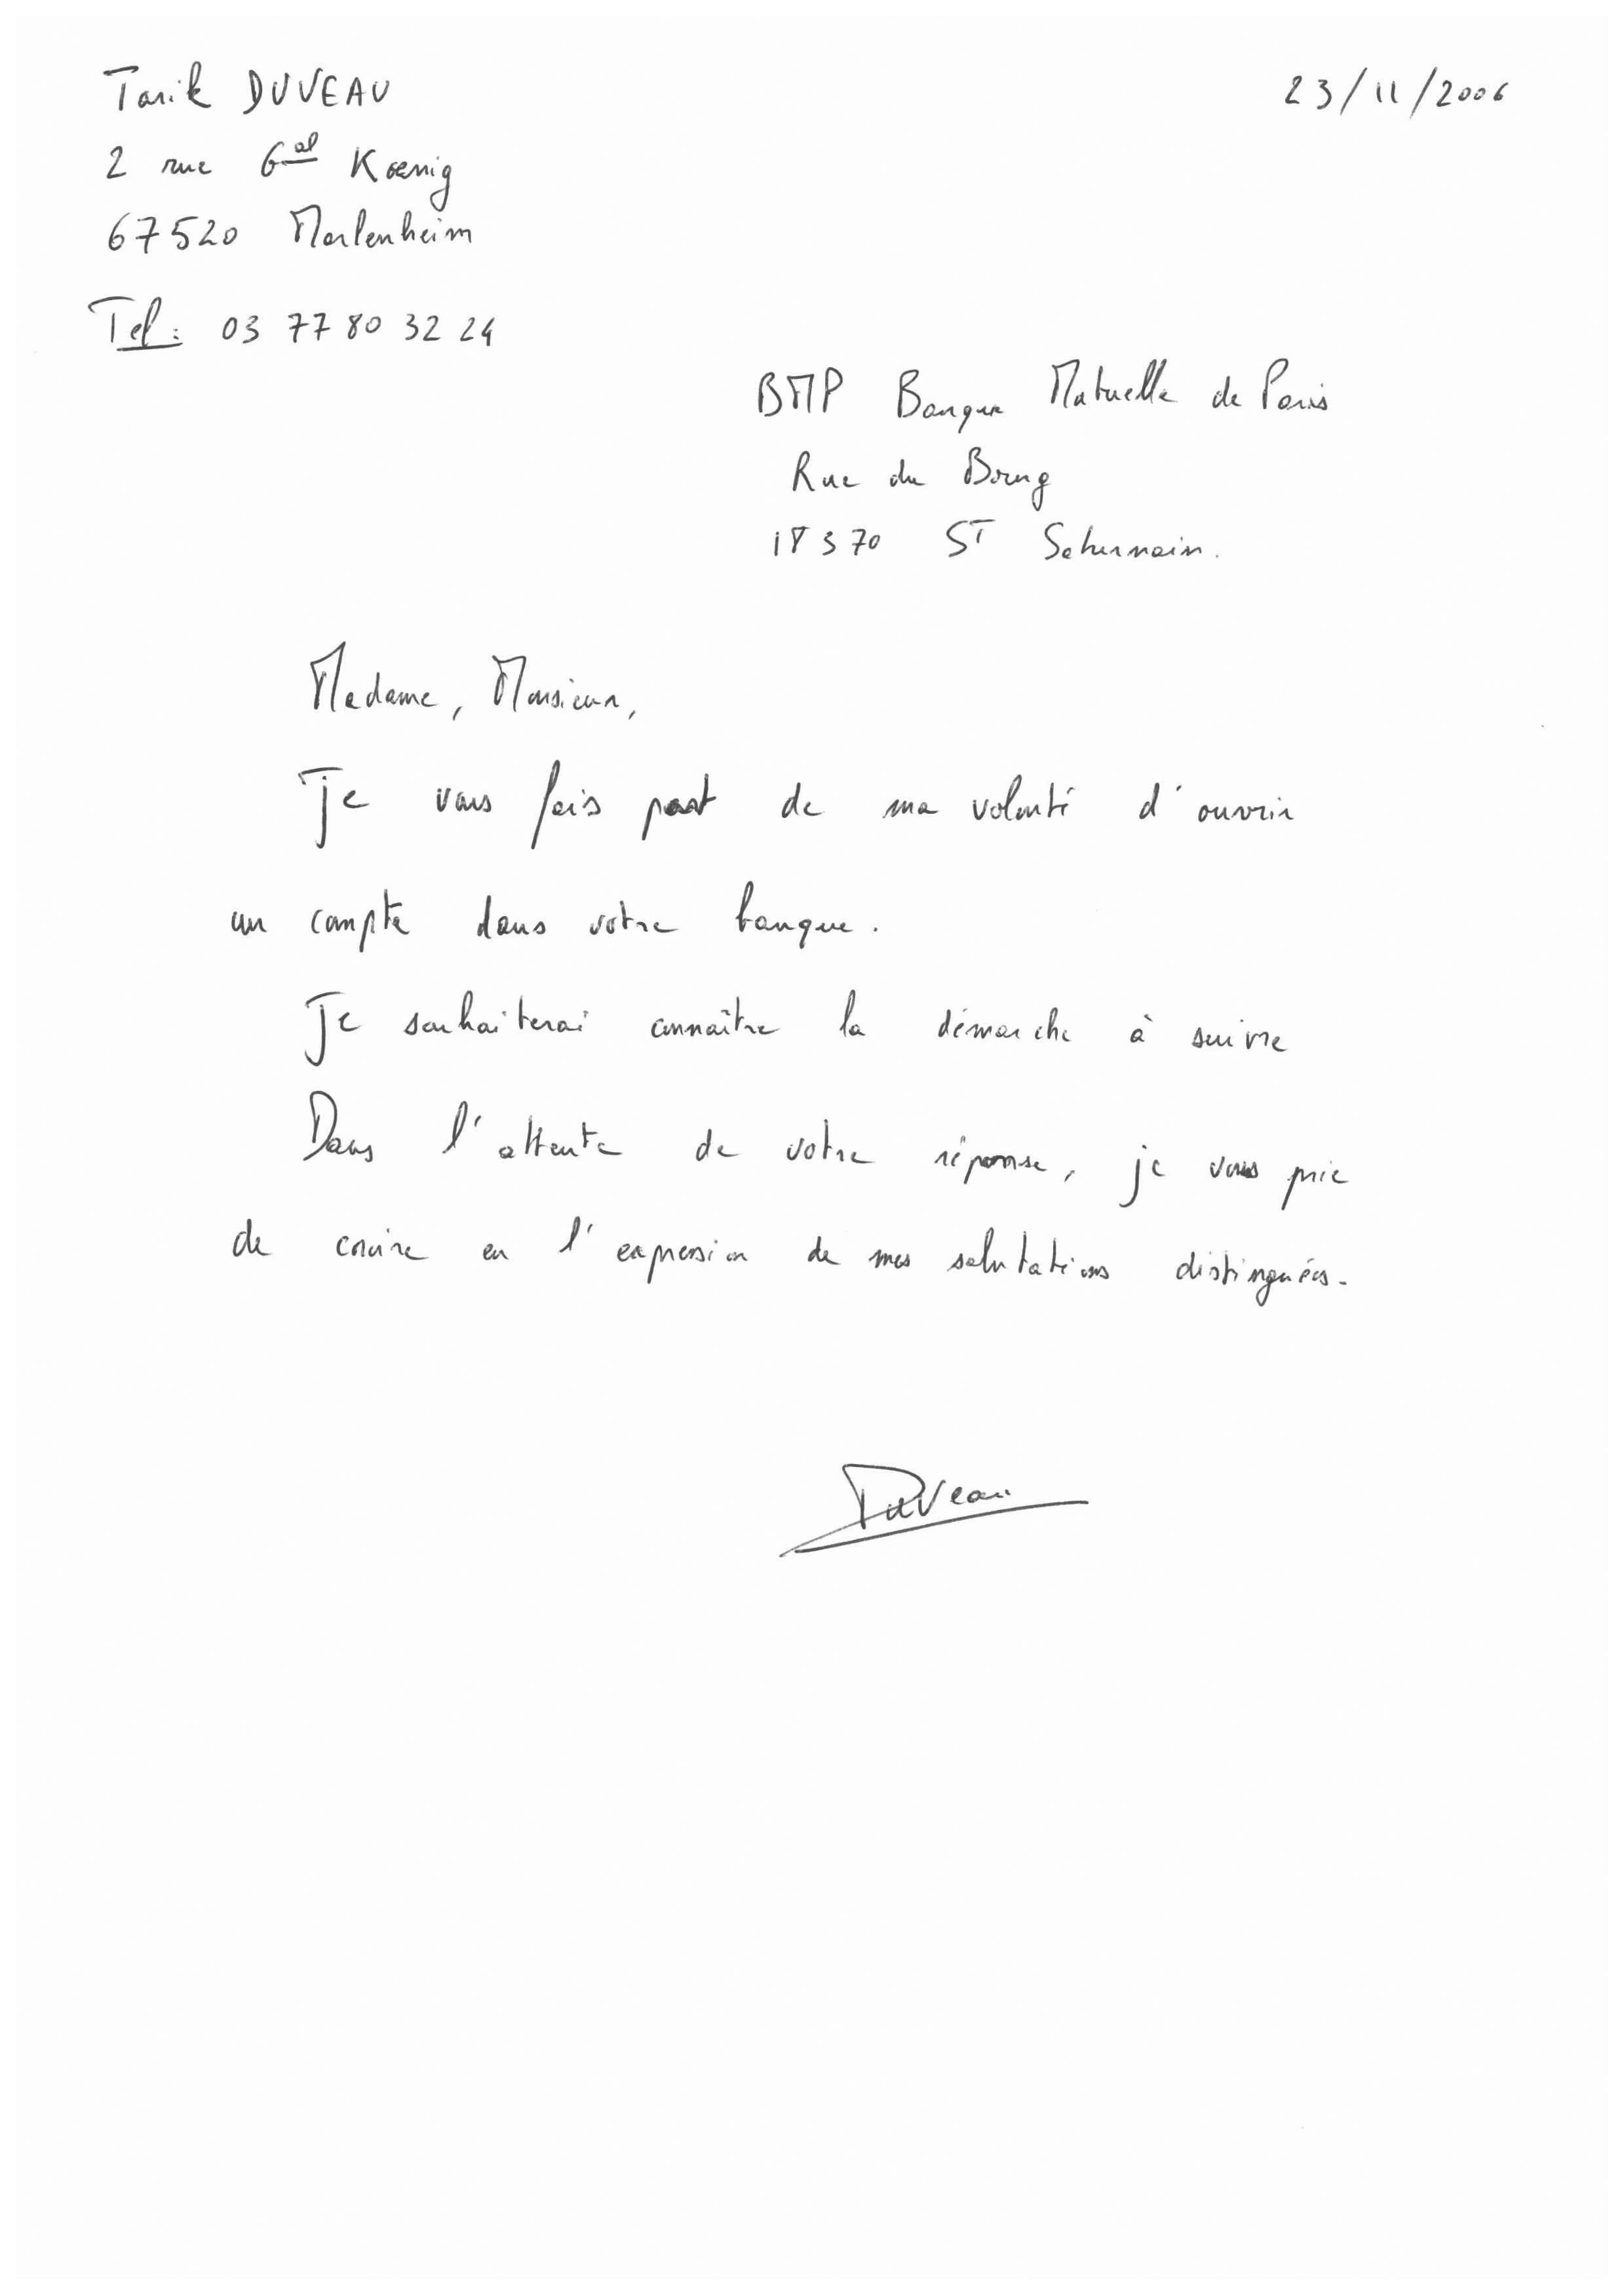 Tarik DUVEAU
23/11/2006
2 rue Gal Koenig
67520 Marlenheim
Tel : 03 77 80 32 24
BMP Banque Mutuelle de Paris
Rue du Bourg
18370 ST Saturnain.
Madame, Monsieur,
Je vous fais part de ma volonté d'ouvrir
un compte dans votre banque.
Je souhaiterai connaître la démarche à suivre
Dans l'attente de votre réponse, je vous prie
de croire en l'expression de mes salutations distinguées.
Duveau